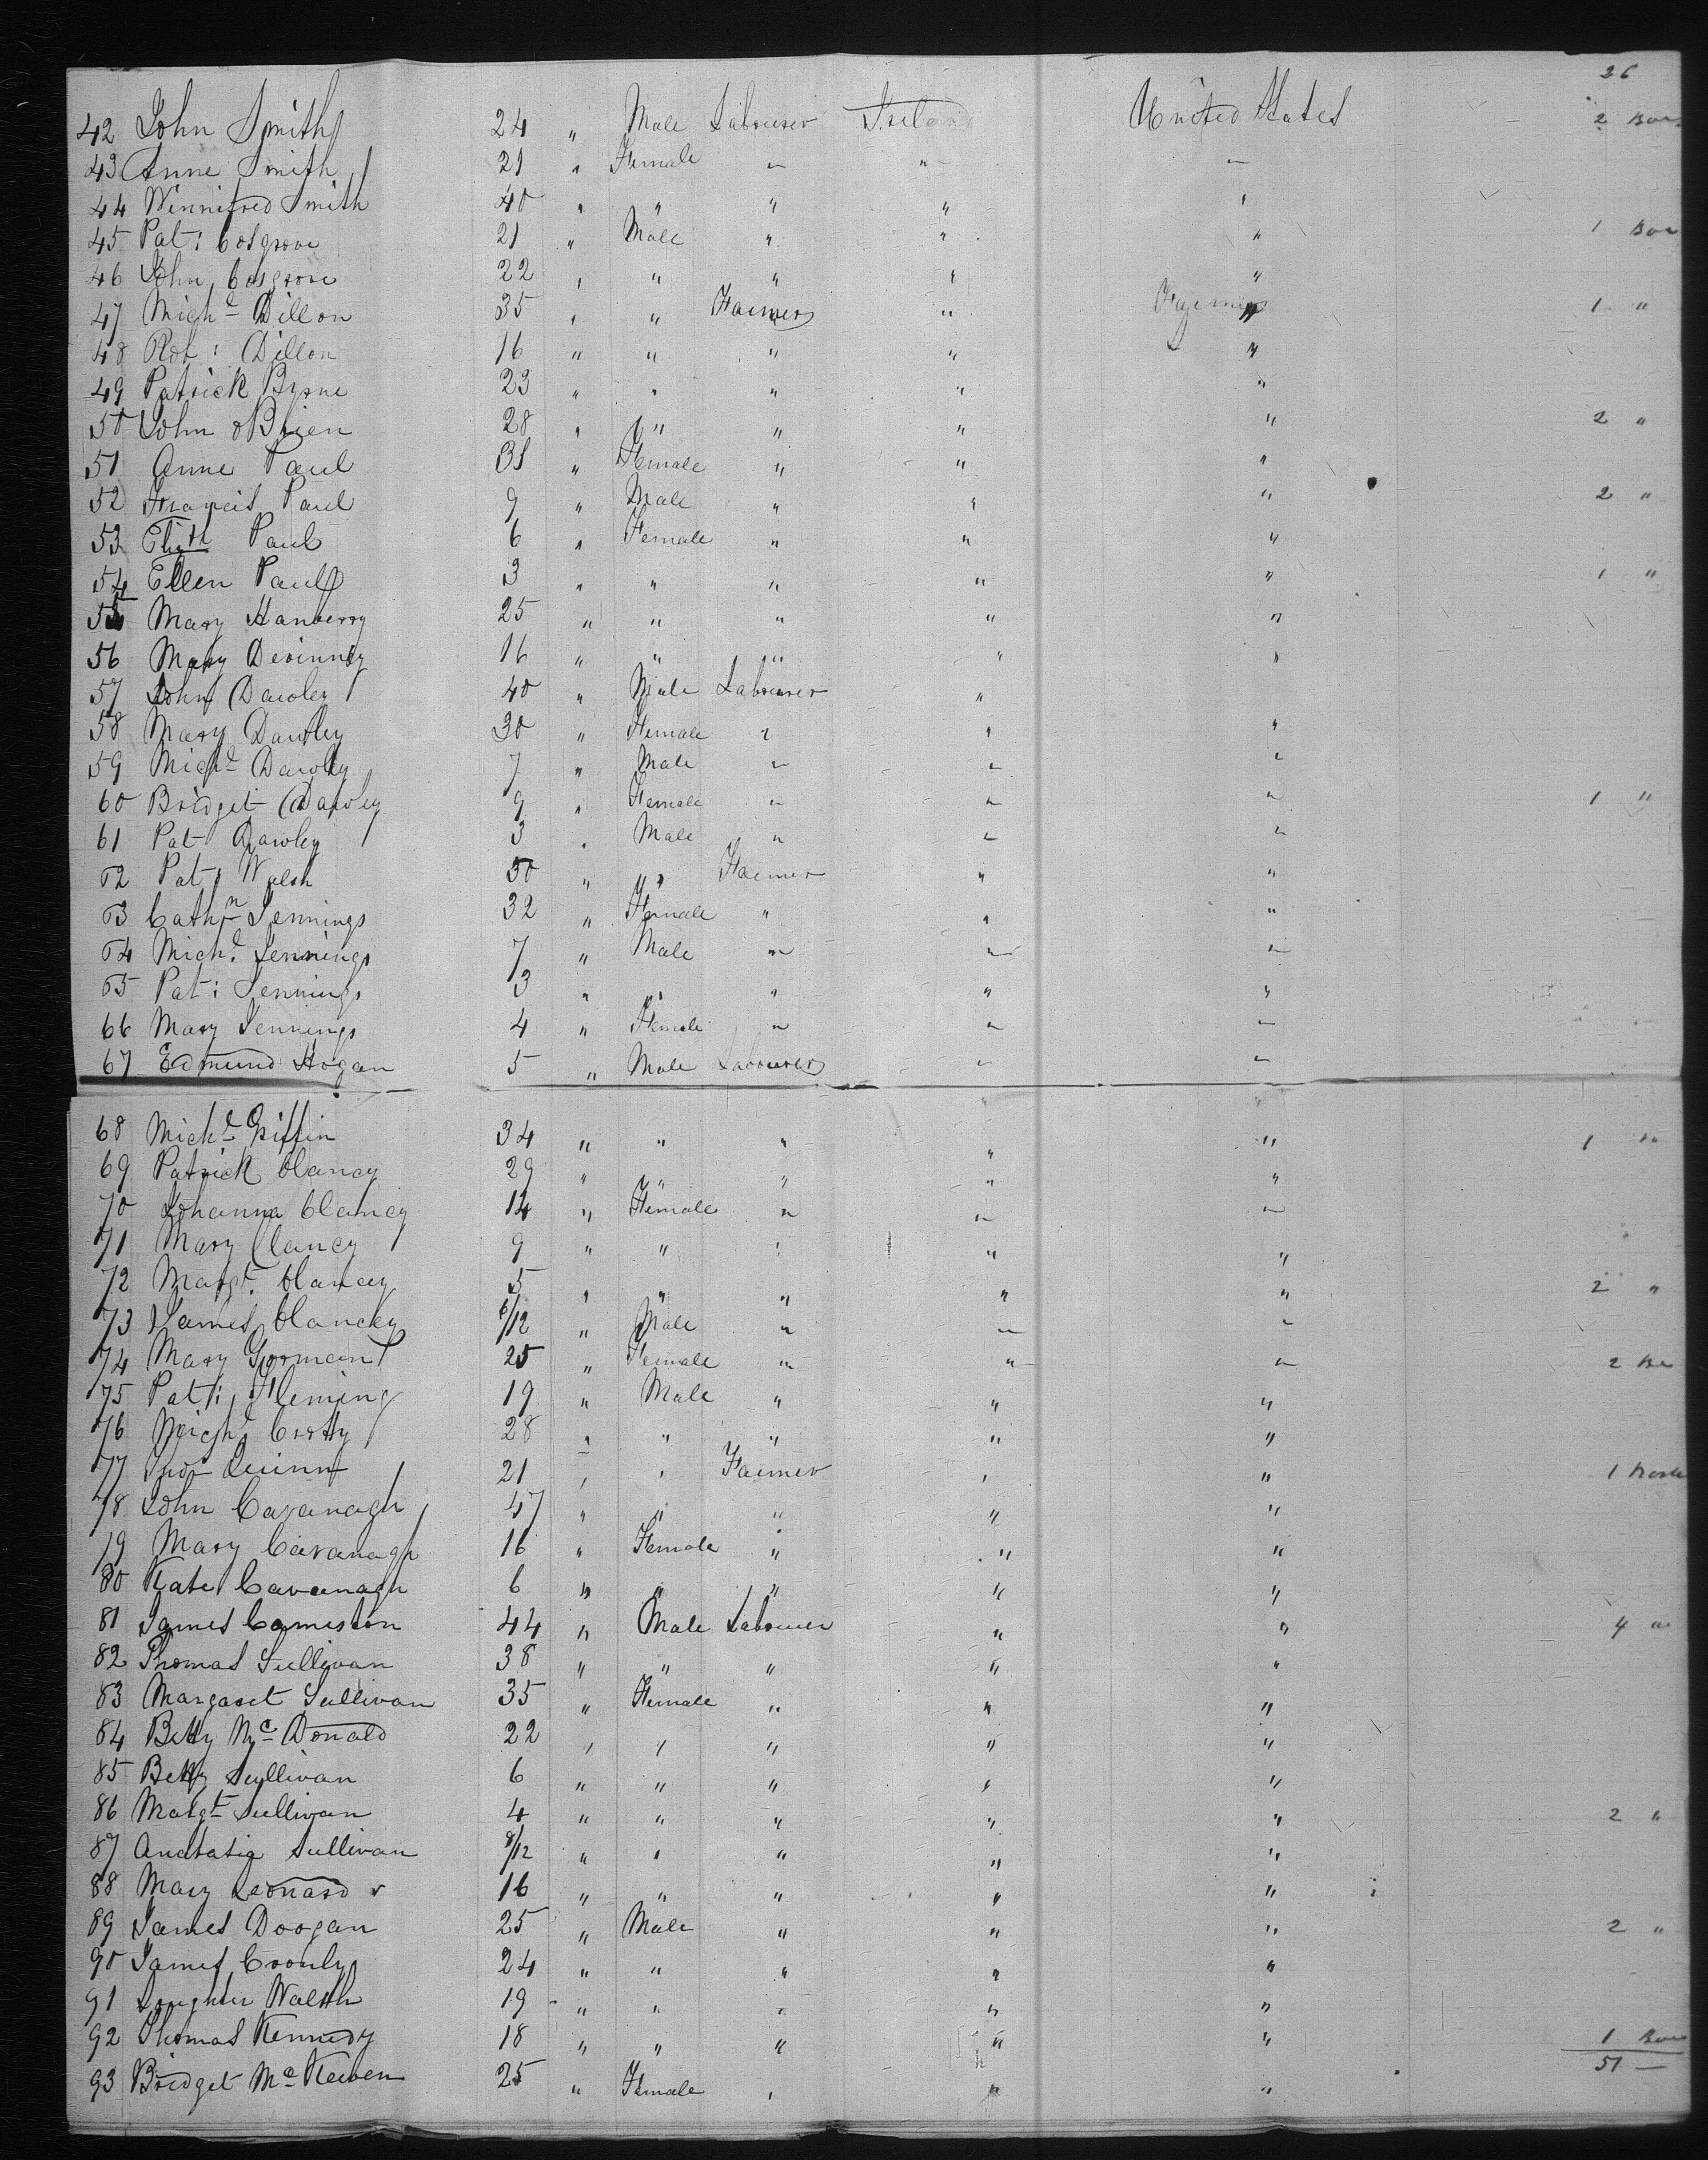 26
42 John Smith 24 " Male Labourer Ireland United States 2 Box
43 Anne Smith 21 " Female " " "
44 Winnifred Smith 40 " " " " "
45 Pat: Cosgrove 21 " Male " " " 1 Box
46 John Cosgrove 22 " " " " "
47 Michl Dillon 35 " " Farmer " Farmer " 1 "
48 Rob: Dillon 16 " " " " "
49 Patrick Byrne 23 " " " " "
50 John oBrien 28 " " " " " 2 "
51 Anne Paul 31 " Female " " "
52 Francis Paul 9 " Male " " " 2 "
53 Elizth Paul 6 " Female " " "
54 Ellen Paul 3 " " " " " 1 "
55 Mary Hanberry 25 " " " " "
56 Mary Devinney 16 " " " " "
57 John Dawley 40 " Male Labourer "
58 Mary Dawley 30 " Female " " "
59 Michl Dawley 7 " Male " " "
60 Bridget Dawley 9 " Female " " " 1 "
61 Pat Dawley 3 " Male " " "
62 Pat: Walsh 30 " " Farmer " "
63 Cathn Jennings 32 " Female " " "
64 Michl Jennings 7 " Male " " "
65 Pat: Jennings 3 " " " " "
66 Mary Jennings 4 " Female " " "
67 Edmund Hogan 5 " Male Labourer " "
68 Michl Griffin 34 " " " " " 1 "
69 Patrick Clancy 29 " " " " "
70 Johanna Clancy 14 " Female " " "
71 Mary Clancy 9 " " " " "
72 Margt. Clancy 5 " " " " " 2 "
73 James Clancy 6/12 " Male " " "
74 Mary Gorman 25 " Female " " " 2 Bx
75 Pat: Fleming 19 " Male " " "
76 Michl Crotty 28 " " " " "
77 Quinn 21 " " Farmer " " 1
78 John Cavanagh 47 " " " " "
79 Mary Cavanagh 16 " Female " " "
80 Kate Cavanagh 6 " " " " "
81 James Comeston 44 " Male Labourer " " 4 "
82 Thomas Sullivan 38 " " " " "
83 Margaret Sullivan 35 " Female " " "
84 Betty Mc Donald 22 " " " " "
85 Betty Sullivan 6 " " " " "
86 Margt Sullivan 4 " " " " " 2 "
87 Anastatia Sullivan 8/12 " " " " "
88 Mary Leonard 16 " " " " "
89 James Doogan 25 " Male " " " 2 "
90 James Cronly 24 " " " " "
91 Walsh 19 " " " " "
92 Thomas Kennedy 18 " " " " " 1 Box
93 Bridget Mc Keiven 25 " Female " " " 51 —